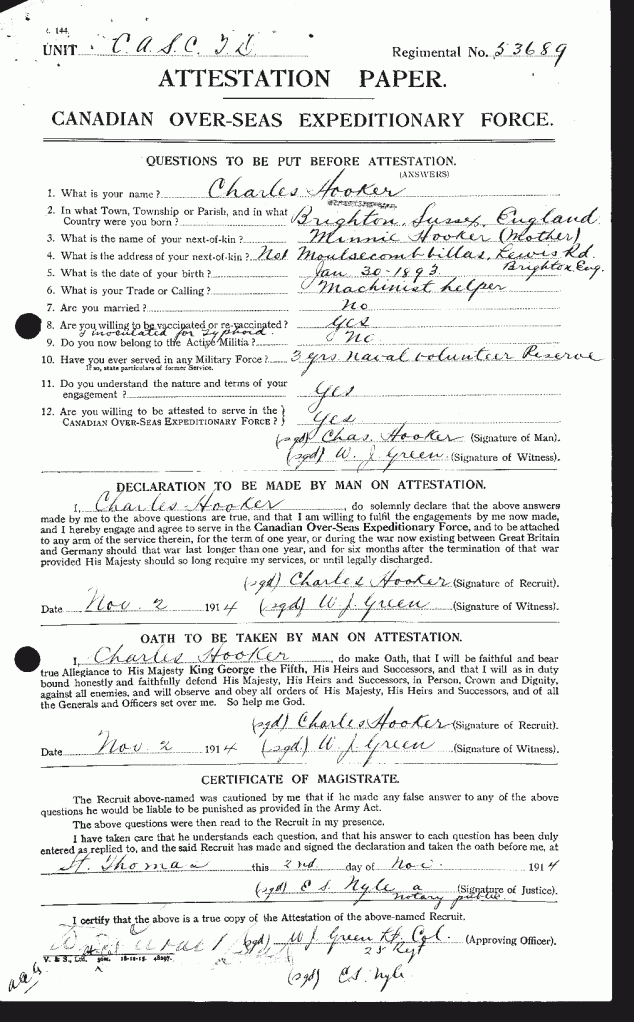 144.
UNIT C.A.S.C. T.D. Regimental No. 53689
ATTESTATION PAPER.
CANADIAN OVER-SEAS EXPEDITIONARY FORCE.
QUESTIONS TO BE PUT BEFORE ATTESTATION.
(ANSWERS)
1. What is your name? Charles Hooker
2. In what Town, Township or Parish, and in what
Country were you born? Brighton, Sussex, England
3. What is the name of your next-of-kin? Minnie Hooker (Mother)
4. What is the address of your next-of-kin? No 1 Moulsecomb billas, Lewis Rd.
Brighton, Eng.
5. What is the date of your birth? Jan 30-1893
6. What is your Trade or Calling? Machinist helper
7. Are you married? No
8. Are you willing to be vaccinated or re-vaccinated? Yes
& inoculated for typhoid.
9. Do you now belong to the Active Militia? No
10. Have you ever served in any Military Force? 3 yrs naval volunteer Reserve
If so, state particulars of former Service.
11. Do you understand the nature and terms of your
engagement? Yes
12. Are you willing to be attested to serve in the
CANADIAN OVER-SEAS EXPEDITIONARY FORCE? Yes
(sgd) Chas. Hooker (Signature of Man).
(sgd) W. J. Green (Signature of Witness).
DECLARATION TO BE MADE BY MAN ON ATTESTATION.
I, Charles Hooker, do solemnly declare that the above answers
made by me to the above questions are true, and that I am willing to fulfil the engagements by me now made,
and I hereby engage and agree to serve in the Canadian Over-Seas Expeditionary Force, and to be attached
to any arm of the service therein, for the term of one year, or during the war now existing between Great Britain
and Germany should that war last longer than one year, and for six months after the termination of that war
provided His Majesty should so long require my services, or until legally discharged.
(sgd) Charles Hooker (Signature of Recruit).
Date Nov. 2 1914 (sgd) W J. Green (Signature of Witness).
OATH TO BE TAKEN BY MAN ON ATTESTATION.
I, Charles Hooker, do make Oath, that I will be faithful and bear
true Allegiance to His Majesty King George the Fifth, His Heirs and Successors, and that I will as in duty
bound honestly and faithfully defend His Majesty, His Heirs and Successors, in Person, Crown and Dignity,
against all enemies, and will observe and obey all orders of His Majesty, His Heirs and Successors, and of all
the Generals and Officers set over me. So help me God.
(sgd) Charles Hooker (Signature of Recruit).
Date Nov. 2 1914 (sgd) W. J. Green (Signature of Witness).
CERTIFICATE OF MAGISTRATE.
The Recruit above-named was cautioned by me that if he made any false answer to any of the above
questions he would be liable to be punished as provided in the Army Act.
The above questions were then read to the Recruit in my presence.
I have taken care that he understands each question, and that his answer to each question has been duly
entered as replied to, and the said Recruit has made and signed the declaration and taken the oath before me, at
St. Thomas this 2nd day of Nov. 1914
(sgd) E S. Nyle a (Signature of Justice).
notary public
I certify that the above is a true copy of the Attestation of the above-named Recruit.
(sgd) W J Green Lt. Col. (Approving Officer).
25 Regt
V. & S., Ltd.
(sgd) E S. Nyle